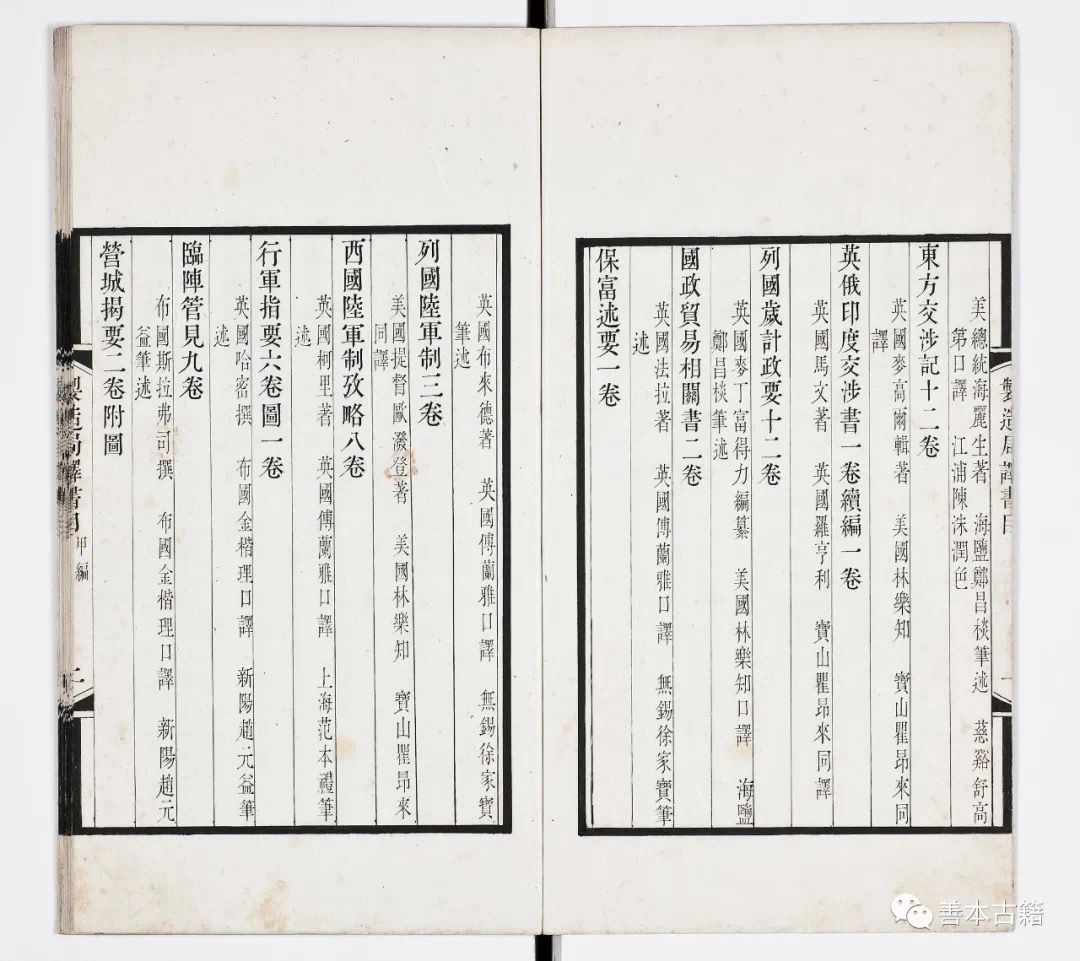 製造局譯書目
一
美總統海麗生著　海鹽鄭昌棪筆述　慈谿舒高
第口譯　江浦陳洙潤色
東方交涉記十二卷
英國麥高爾輯著　美國林樂知　寶山瞿昂來同
譯
英俄印度交涉書一卷續編一卷
英國馬文著　英國羅亨利　寶山瞿昂來同譯
列國歲計政要十二卷
英國麥丁富得力編纂　美國林樂知口譯　海鹽
鄭昌棪筆述
國政貿易相關書二卷
英國法拉著　英國傅蘭雅口譯　無錫徐家寶筆
述
保富述要一卷
英國布來德著　英國傅蘭雅口譯　無錫徐家寶
筆述
列國陸軍制三卷
美國提督歐潑登著　美國林樂知　寶山瞿昂來
同譯
西國陸軍制攷略八卷
英國柯里著　英國傅蘭雅口譯　上海范本禮筆
述
行軍指要六卷圖一卷
英國哈密撰　布國金楷理口譯　新陽趙元益筆
述
臨陣管見九卷
布國斯拉弗司撰　布國金楷理口譯　新陽趙元
益筆述
營城揭要二卷附圖
製造局譯書目　甲編
二
善本古籍